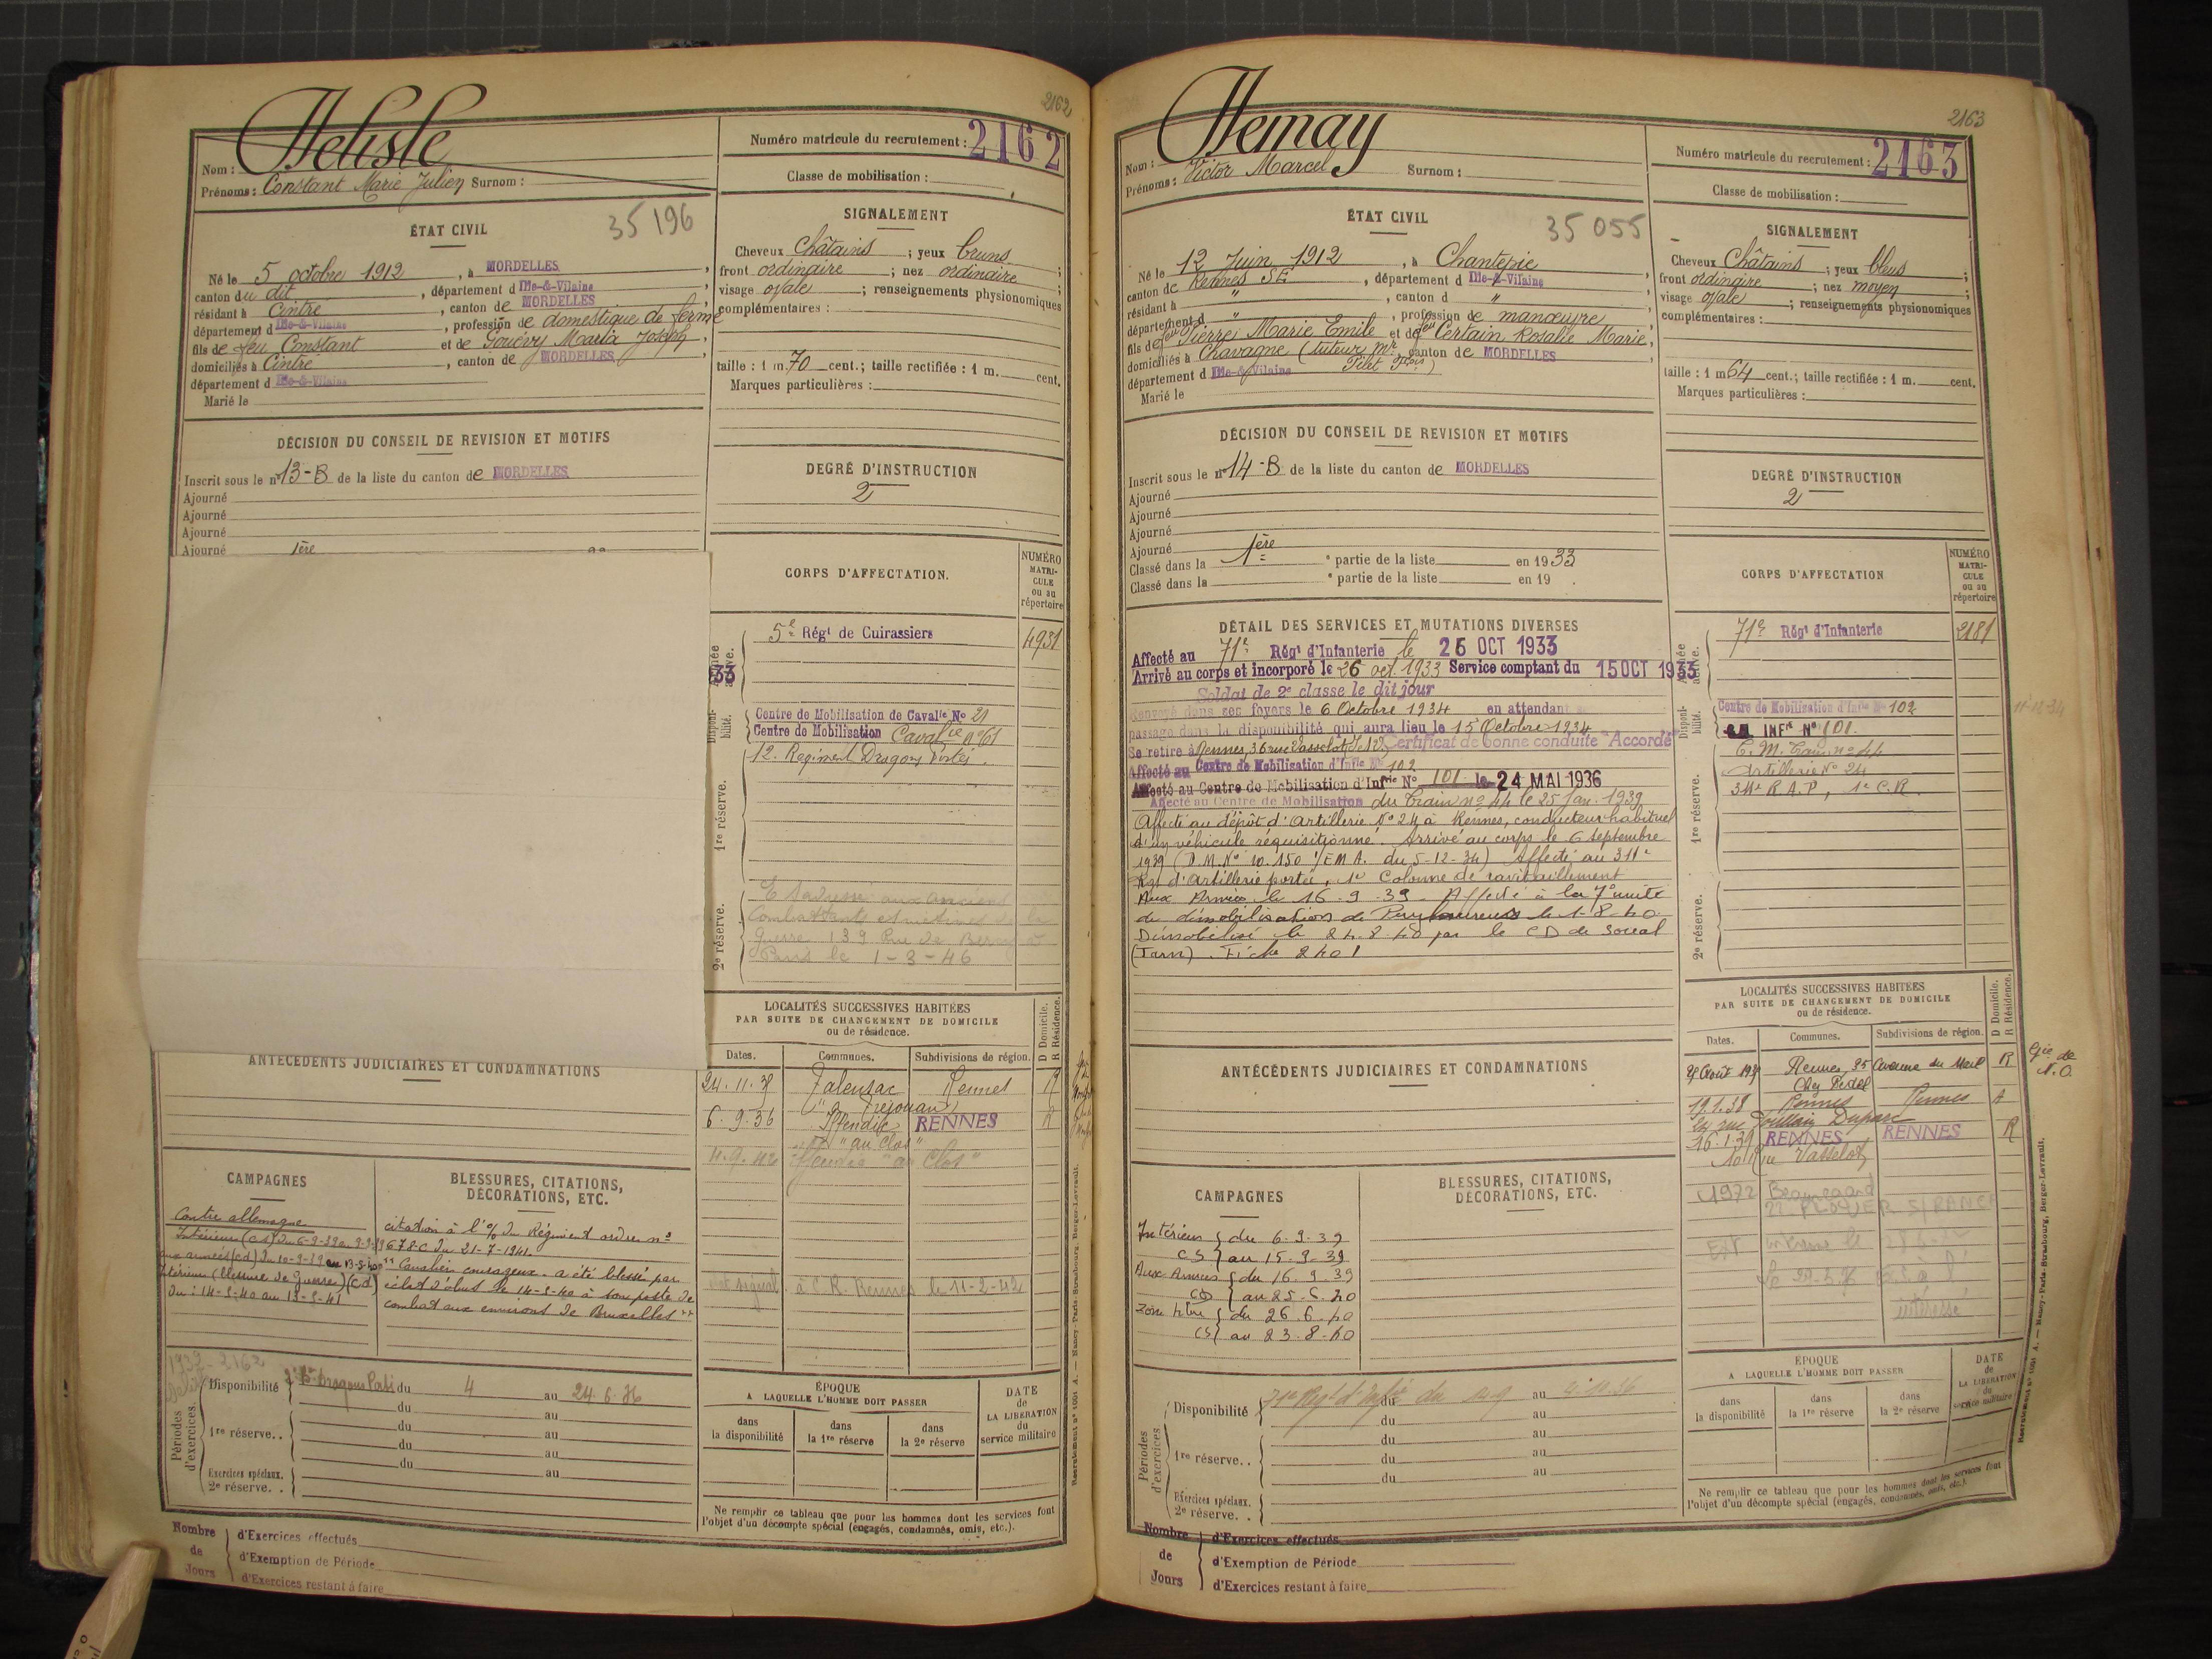 2162
Nom : Helisle
Numéro matricule du recrutement : 2162
Prénoms : Constant Marie Julien Surnom :
Classe de mobilisation :
ÉTAT CIVIL
35196
Né le 5 octobre 1912, à MORDELLES,
canton du dit, département d Ille-&-Vilaine,
résidant à Cintré, canton de MORDELLES,
département d Ille-&-Vilaine, profession de domestique de ferme
fils de feu Constant et de Gouévy Maria Joseph,
domiciliés à Cintré, canton de MORDELLES,
département d Ille-&-Vilaine
Marié le
SIGNALEMENT
Cheveux Châtains ; yeux bruns ;
front ordinaire ; nez ordinaire ;
visage ovale ; renseignements physionomiques
complémentaires :
taille : 1 m. 70 cent. ; taille rectifiée : 1 m. cent.
Marques particulières :
DÉCISION DU CONSEIL DE REVISION ET MOTIFS
Inscrit sous le n° 13-B de la liste du canton de MORDELLES
Ajourné
Ajourné
Ajourné
Ajourné
1ère
DEGRÉ D'INSTRUCTION
2
CORPS D'AFFECTATION.
NUMÉRO MATRI-CULE ou au répertoire
Armée active.
33
5e Régt de Cuirassiers 4931
Disponi-bilité.
Centre de Mobilisation de Cavalie No 21
Centre de Mobilisation Cavalie n° 61
1re réserve.
12. Régiment Dragons Portés.
2e réserve.
E S'adresser aux anciens
Combattants et victimes de la
Guerre 139 Rue de Bercy à
Paris le 1-3-46
LOCALITÉS SUCCESSIVES HABITÉES
PAR SUITE DE CHANGEMENT DE DOMICILE
ou de résidence.
D Domicile.
R Résidence.
Dates. Communes. Subdivisions de région.
24.11.35 Talensac Rennes R
6.9.36 Iffendic RENNES R
"au Clos"
4.9.42 Iffendic "au Clos"
à C.R. Rennes le 11-2-42
ANTÉCÉDENTS JUDICIAIRES ET CONDAMNATIONS
CAMPAGNES
Contre allemagne
Intérieur (cs) du 6-9-39 au 9-9-39
aux armées (cd) du 10-9-39 au 13-5-40
Intérieur (blessure de guerre) (cd)
du : 14-5-40 au 13-5-41
BLESSURES, CITATIONS,
DÉCORATIONS, ETC.
citation à l'% du Régiment ordre n°
678-C du 21-7-1941.
"Cavalier courageux. a été blessé par
éclat d'obus le 14-5-40 à son poste de
combat aux environs de Bruxelles"
1932-2162
Périodes d'exercices.
Disponibilité Dragons Portés du 4 au 24.6.36
du au
1re réserve.. du au
du au
du au
Exercices spéciaux.
2e réserve. .
ÉPOQUE
A LAQUELLE L'HOMME DOIT PASSER
dans la disponibilité
dans la 1re réserve
dans la 2e réserve
DATE de LA LIBERATION du service militaire
Ne remplir ce tableau que pour les hommes dont les services font
l'objet d'un décompte spécial (engagés, condamnés, omis, etc.).
Recrutement n° 1601 A. — Nancy-Paris-Strasbourg, Berger-Levrault.
Nombre de Jours
d'Exercices effectués
d'Exemption de Période
d'Exercices restant à faire
2163
Nom : Hemay
Numéro matricule du recrutement : 2163
Prénoms : Victor Marcel Surnom :
Classe de mobilisation :
ÉTAT CIVIL
35055
Né le 12 Juin 1912, à Chantepie,
canton de Rennes SE, département d Ille-&-Vilaine
résidant à ", canton d "
département d ", profession de manœuvre,
fils de feu Pierre Marie Emile et de feu Certain Rosalie Marie,
domiciliés à Chavagne (tuteur Mr, canton de MORDELLES
département d Ille-&-Vilaine Pilet Fçois)
Marié le
SIGNALEMENT
Cheveux Châtains ; yeux bleus ;
front ordinaire ; nez moyen ;
visage ovale ; renseignements physionomiques
complémentaires :
taille : 1 m 64 cent. ; taille rectifiée : 1 m. cent.
Marques particulières :
DÉCISION DU CONSEIL DE REVISION ET MOTIFS
Inscrit sous le n° 14-B de la liste du canton de MORDELLES
Ajourné
Ajourné
Ajourné
Ajourné
Classé dans la 1ère partie de la liste en 1933
Classé dans la e partie de la liste en 19 .
DEGRÉ D'INSTRUCTION
2
DÉTAIL DES SERVICES ET MUTATIONS DIVERSES
Affecté au 71e Régt d'Infanterie le 26 OCT 1933
Arrivé au corps et incorporé le 26 oct 1933 Service comptant du 15 OCT 1933
Soldat de 2e classe le dit jour
Renvoyé dans ses foyers le 6 Octobre 1934 en attendant
passage dans la disponibilité qui aura lieu le 15 Octobre 1934
Se retire à Rennes, 36 rue Vasselot, I et V. Certificat de bonne conduite "Accordé"
Affecté au Centre de Mobilisation d'Infie No 102
Affecté au Centre de Mobilisation d'Infrie No 101 le 24 MAI 1936
Affecté au Centre de Mobilisation du Train n° 44 le 25 Jan. 1939
Affecté au dépôt d'Artillerie N° 24 à Rennes, conducteur habituel
d'un véhicule réquisitionné. Arrivé au corps le 6 septembre
1939 (D.M. N° 10.150 1/EMA. du 5-12-34) Affecté au 311e
Rgt d'Artillerie portée, 1e Colonne de ravitaillement
Aux Armées le 16.9.39. Affecté à la 7e unité
de démobilisation de Puylaurens le 1-8-40
Démobilisé le 24.8.40 par le CD de Soual
(Tarn). Fiche 2401
CORPS D'AFFECTATION
NUMÉRO MATRI-CULE ou au répertoire
Armée active.
71e Régt d'Infanterie 2181
Disponi-bilité.
Centre de Mobilisation d'Infie No 102
INFie No 101.
1re réserve.
C.M. Train n° 44
Artillerie N° 24
311e R.A.P, 1e C.R.
2e réserve.
LOCALITÉS SUCCESSIVES HABITÉES
PAR SUITE DE CHANGEMENT DE DOMICILE
ou de résidence.
D Domicile.
R Résidence.
Dates. Communes. Subdivisions de région.
Août 193 Rennes, 35 Avenue du Mail R
19.1.38 Rennes Rennes
rue Toullain Duparc
16.1.39 RENNES RENNES R
10 Rue Vasselot
C1972 Beauregard
22 PLOUER S/RANCE
intéressé
ANTÉCÉDENTS JUDICIAIRES ET CONDAMNATIONS
CAMPAGNES
Intérieur du 6.9.39
CS au 15.9.39
Aux Armées du 16.9.39
CD au 25.6.40
Zone libre du 26.6.40
CS au 23.8.40
BLESSURES, CITATIONS,
DÉCORATIONS, ETC.
Périodes d'exercices.
Disponibilité 71e Régt d'Infie du au
du au
1re réserve.. du au
du au
du au
Exercices spéciaux.
2e réserve. .
ÉPOQUE
A LAQUELLE L'HOMME DOIT PASSER
dans la disponibilité
dans la 1re réserve
dans la 2e réserve
DATE de LA LIBERATION du service militaire
Ne remplir ce tableau que pour les hommes dont les services font
l'objet d'un décompte spécial (engagés, condamnés, omis, etc.).
Recrutement n° 1601 A. — Nancy-Paris-Strasbourg, Berger-Levrault.
Nombre de Jours
d'Exercices effectués
d'Exemption de Période
d'Exercices restant à faire